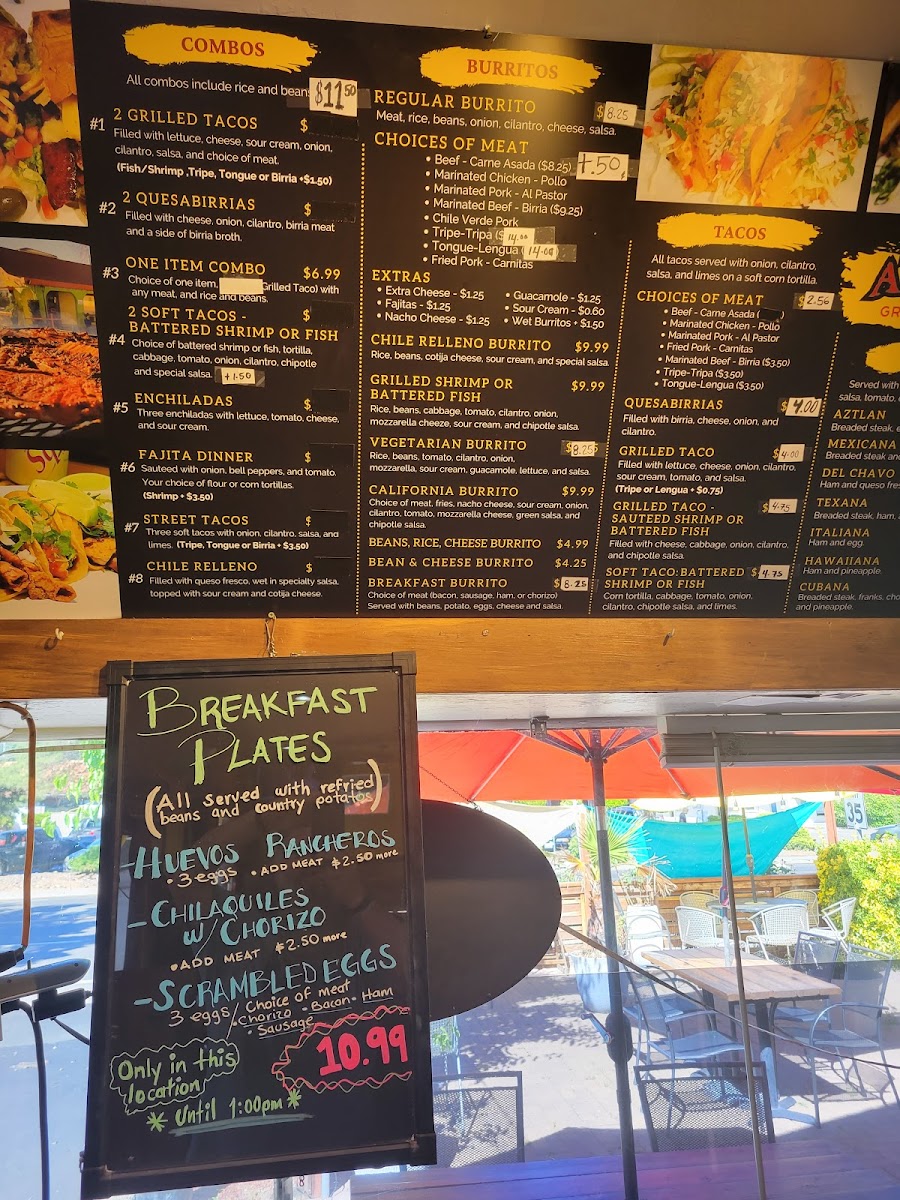 COMBOS
All combos include rice and beans
$11.50
#1 2 GRILLED TACOS $
Filled with lettuce, cheese, sour cream, onion,
cilantro, salsa, and choice of meat.
(Fish/Shrimp ,Tripe, Tongue or Birria +$1.50)
#2 2 QUESABIRRIAS $
Filled with cheese, onion, cilantro, birria meat
and a side of birria broth.
#3 ONE ITEM COMBO $6.99
Choice of one item, Grilled Taco) with
any meat, and rice and beans.
#4 2 SOFT TACOS - $
BATTERED SHRIMP OR FISH
Choice of battered shrimp or fish, tortilla,
cabbage, tomato, onion, cilantro, chipotle
and special salsa. +1.50
#5 ENCHILADAS $
Three enchiladas with lettuce, tomato, cheese,
and sour cream.
#6 FAJITA DINNER $
Sauteed with onion, bell peppers, and tomato.
Your choice of flour or corn tortillas.
(Shrimp + $3.50)
#7 STREET TACOS $
Three soft tacos with onion, cilantro, salsa, and
limes. (Tripe, Tongue or Birria + $3.50)
#8 CHILE RELLENO $
Filled with queso fresco, wet in specialty salsa,
topped with sour cream and cotija cheese.
BURRITOS
REGULAR BURRITO $8.25
Meat, rice, beans, onion, cilantro, cheese, salsa.
CHOICES OF MEAT
• Beef - Carne Asada ($8.25) +.50
• Marinated Chicken - Pollo
• Marinated Pork - Al Pastor
• Marinated Beef - Birria ($9.25)
• Chile Verde Pork
• Tripe-Tripa ($ 14.00
• Tongue-Lengua ( 14.00
• Fried Pork - Carnitas
EXTRAS
• Extra Cheese - $1.25
• Fajitas - $1.25
• Nacho Cheese - $1.25
• Guacamole - $1.25
• Sour Cream - $0.60
• Wet Burritos + $1.50
CHILE RELLENO BURRITO $9.99
Rice, beans, cotija cheese, sour cream, and special salsa.
GRILLED SHRIMP OR $9.99
BATTERED FISH
Rice, beans, cabbage, tomato, cilantro, onion,
mozzarella cheeze, sour cream, and chipotle salsa.
VEGETARIAN BURRITO $8.25
Rice, beans, tomato, cilantro, onion,
mozzarella, sour cream, guacamole, lettuce, and salsa.
CALIFORNIA BURRITO $9.99
Choice of meat, fries, nacho cheese, sour cream, onion,
cilantro, tomato, mozzarella cheese, green salsa, and
chipotle salsa.
BEANS, RICE, CHEESE BURRITO $4.99
BEAN & CHEESE BURRITO $4.25
BREAKFAST BURRITO $8.25
Choice of meat (bacon, sausage, ham, or chorizo)
Served with beans, potato, eggs, cheese and salsa.
TACOS
All tacos served with onion, cilantro,
salsa, and limes on a soft corn tortilla.
CHOICES OF MEAT $2.56
• Beef - Carne Asada (
• Marinated Chicken - Pollo
• Marinated Pork - Al Pastor
• Fried Pork - Carnitas
• Marinated Beef - Birria ($3.50)
• Tripe-Tripa ($3.50)
• Tongue-Lengua ($3.50)
QUESABIRRIAS $4.00
Filled with birria, cheese, onion, and
cilantro.
GRILLED TACO $4.00
Filled with lettuce, cheese, onion, cilantro,
sour cream, tomato, and salsa.
(Tripe or Lengua + $0.75)
GRILLED TACO - $4.75
SAUTEED SHRIMP OR
BATTERED FISH
Filled with cheese, cabbage, onion, cilantro,
and chipotle salsa.
SOFT TACO: BATTERED $4.75
SHRIMP OR FISH
Corn tortilla, cabbage, tomato, onion,
cilantro, chipotle salsa, and limes.
A
GR
Served with
salsa, tomato,
AZTLAN
Breaded steak,
MEXICANA
Breaded steak and
DEL CHAVO
Ham and queso fres
TEXANA
Breaded steak, ham,
ITALIANA
Ham and egg.
HAWAIIANA
Ham and pineapple.
CUBANA
Breaded steak, franks, cho
and pineapple.
BREAKFAST
PLATES
(All served with refried
beans and country potatos)
-HUEVOS RANCHEROS
• 3 eggs • ADD MEAT $2.50 more
-CHILAQUILES
w/ CHORIZO
• ADD MEAT $2.50 more
-SCRAMBLED EGGS
3 eggs / Choice of meat
• Chorizo • Bacon • Ham
• Sausage
10.99
Only in this
location
* Until 1:00pm *
35